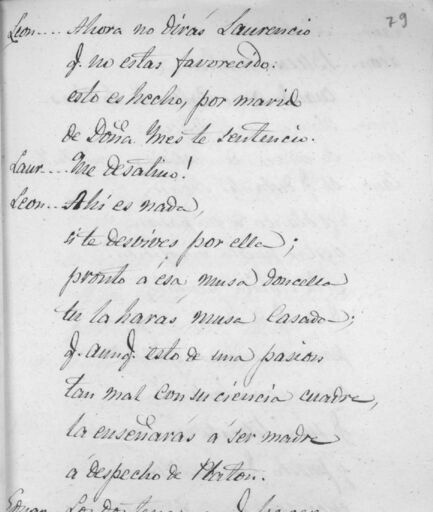 79
Leon.... Ahora no dirás Laurencio
q. no estas favorecido:
esto es hecho, por marid
de Doña Ines te sentencio.
Laur.... Me desatino!
Leon... Ahi es nada,
si te desvives por ella;
pronto a esa musa doncella
tu la harás musa Casada;
q. aunq. esto de una pasion
tan mal con su ciencia cuadre,
la enseñarás á ser madre
á despecho de Platon.